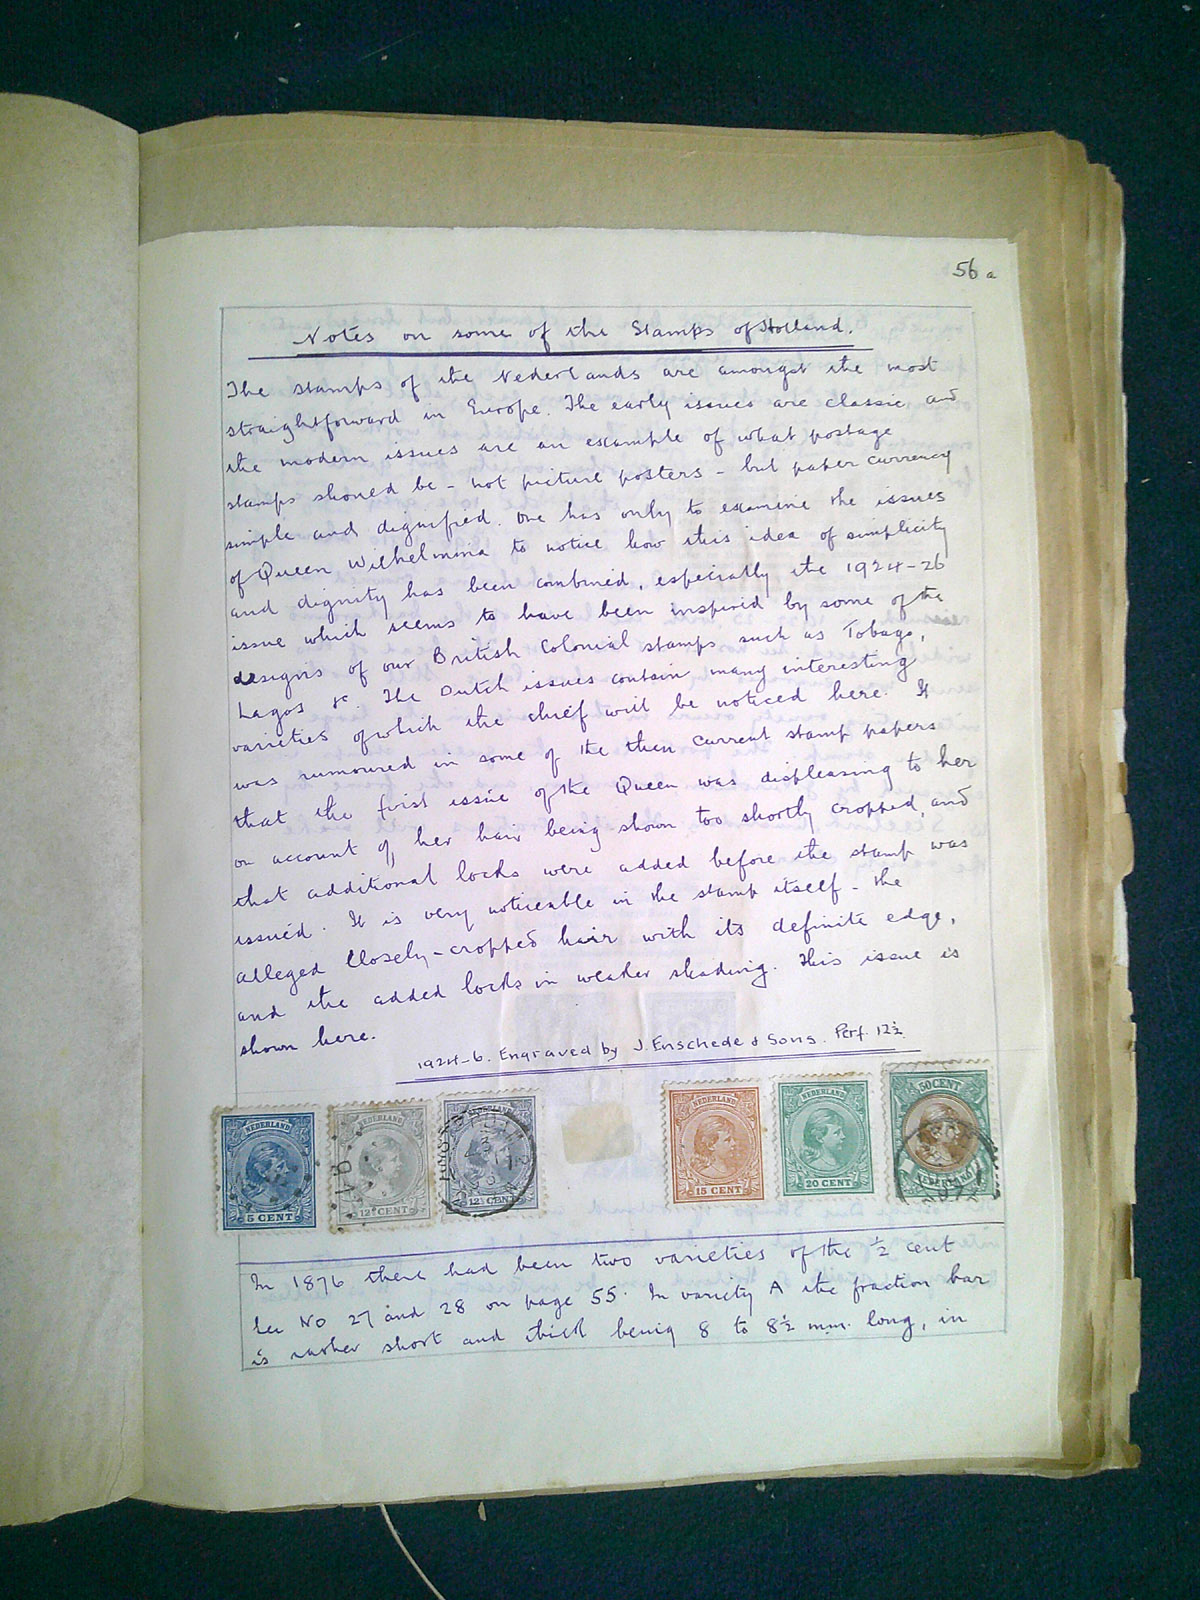 56a
Notes on some of the Stamps of Holland.
The stamps of the Nederlands are amongst the most
straightforward in Europe. The early issues are classic and
the modern issues are an example of what postage
stamps should be - not picture posters - but paper currency
simple and dignified. One has only to examine the issues
of Queen Wilhelmina to notice how this idea of simplicity
and dignity has been combined, especially the 1924-26
issue which seems to have been inspired by some of the
designs of our British Colonial stamps such as Tobago,
Lagos &c. The Dutch issues contain many interesting
varieties of which the chief will be noticed here. It
was rumoured in some of the then current stamp papers
that the first issue of the Queen was displeasing to her
on account of her hair being shown too shortly cropped, and
that additional locks were added before the stamp was
issued. It is very noticeable in the stamp itself - the
alleged closely-cropped hair with its definite edge,
and the added locks in weaker shading. This issue is
shown here.
1924-6. Engraved by J. Enschede & Sons. Perf. 12½
NEDERLAND NEDERLAND NEDERLAND NEDERLAND NEDERLAND 50 CENT
5 CENT 12½ CENT 12½ CENT 15 CENT 20 CENT NEDERLAND
In 1876 there had been two varieties of the ½ cent
See No 27 and 28 on page 55. In variety A the fraction bar
is rather short and thick being 8 to 8½ mm. long, in